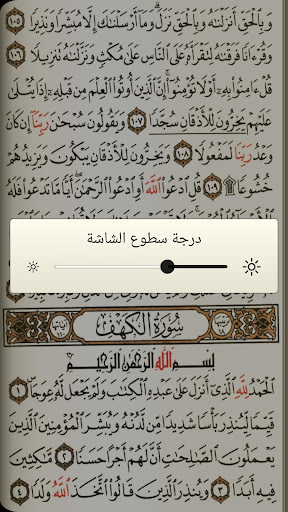 وَبِٱلْحَقِّ أَنزَلْنَٰهُ وَبِٱلْحَقِّ نَزَلَ ۗ وَمَآ أَرْسَلْنَٰكَ إِلَّا مُبَشِّرًا وَنَذِيرًا ١٠٥
وَقُرْءَانًا فَرَقْنَٰهُ لِتَقْرَأَهُۥ عَلَى ٱلنَّاسِ عَلَىٰ مُكْثٍ وَنَزَّلْنَٰهُ تَنزِيلًا ١٠٦
قُلْ ءَامِنُوا۟ بِهِۦٓ أَوْ لَا تُؤْمِنُوٓا۟ ۚ إِنَّ ٱلَّذِينَ أُوتُوا۟ ٱلْعِلْمَ مِن قَبْلِهِۦٓ إِذَا يُتْلَىٰ
عَلَيْهِمْ يَخِرُّونَ لِلْأَذْقَانِ سُجَّدًا ١٠٧ وَيَقُولُونَ سُبْحَٰنَ رَبِّنَآ إِن كَانَ
وَعْدُ رَبِّنَا لَمَفْعُولًا ١٠٨ وَيَخِرُّونَ لِلْأَذْقَانِ يَبْكُونَ وَيَزِيدُهُمْ
خُشُوعًا ۩ ١٠٩ قُلِ ٱدْعُوا۟ ٱللَّهَ أَوِ ٱدْعُوا۟ ٱلرَّحْمَٰنَ ۖ أَيًّا مَّا تَدْعُوا۟ فَلَهُ
درجة سطوع الشاشة
سُورَةُ الكَهْفِ
بِسْمِ ٱللَّهِ ٱلرَّحْمَٰنِ ٱلرَّحِيمِ
ٱلْحَمْدُ لِلَّهِ ٱلَّذِىٓ أَنزَلَ عَلَىٰ عَبْدِهِ ٱلْكِتَٰبَ وَلَمْ يَجْعَل لَّهُۥ عِوَجَا ۜ ١
قَيِّمًا لِّيُنذِرَ بَأْسًا شَدِيدًا مِّن لَّدُنْهُ وَيُبَشِّرَ ٱلْمُؤْمِنِينَ ٱلَّذِينَ
يَعْمَلُونَ ٱلصَّٰلِحَٰتِ أَنَّ لَهُمْ أَجْرًا حَسَنًا ٢ مَّٰكِثِينَ
فِيهِ أَبَدًا ٣ وَيُنذِرَ ٱلَّذِينَ قَالُوا۟ ٱتَّخَذَ ٱللَّهُ وَلَدًا ٤